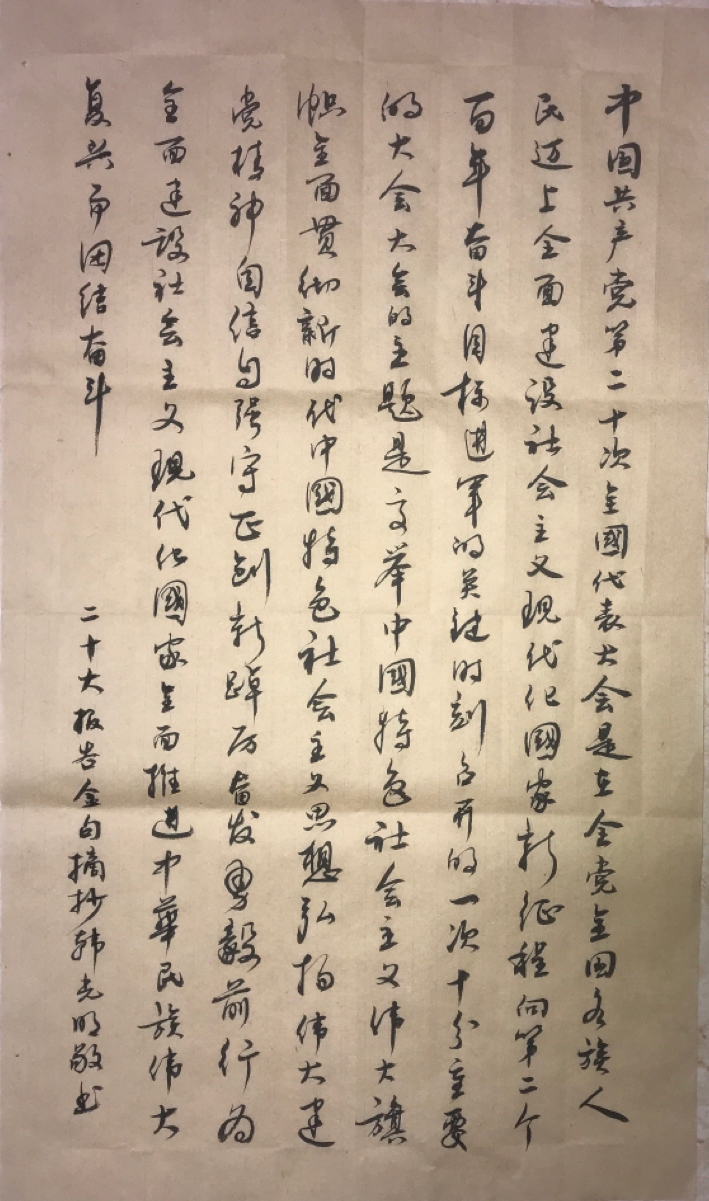 中国共产党第二十次全國代表大会是在全党全国各族人
民迈上全面建设社会主义现代化國家新征程向第二个
百年奋斗目标进军的关键时刻召开的一次十分重要
的大会大会的主题是高举中國特色社会主义伟大旗
帜全面贯彻新时代中國特色社会主义思想弘扬伟大建
党精神自信自强守正创新踔厉奋发勇毅前行为
全面建设社会主义现代化國家全面推进中華民族伟大
复兴而团结奋斗
二十大报告金句摘抄韩克明敬书